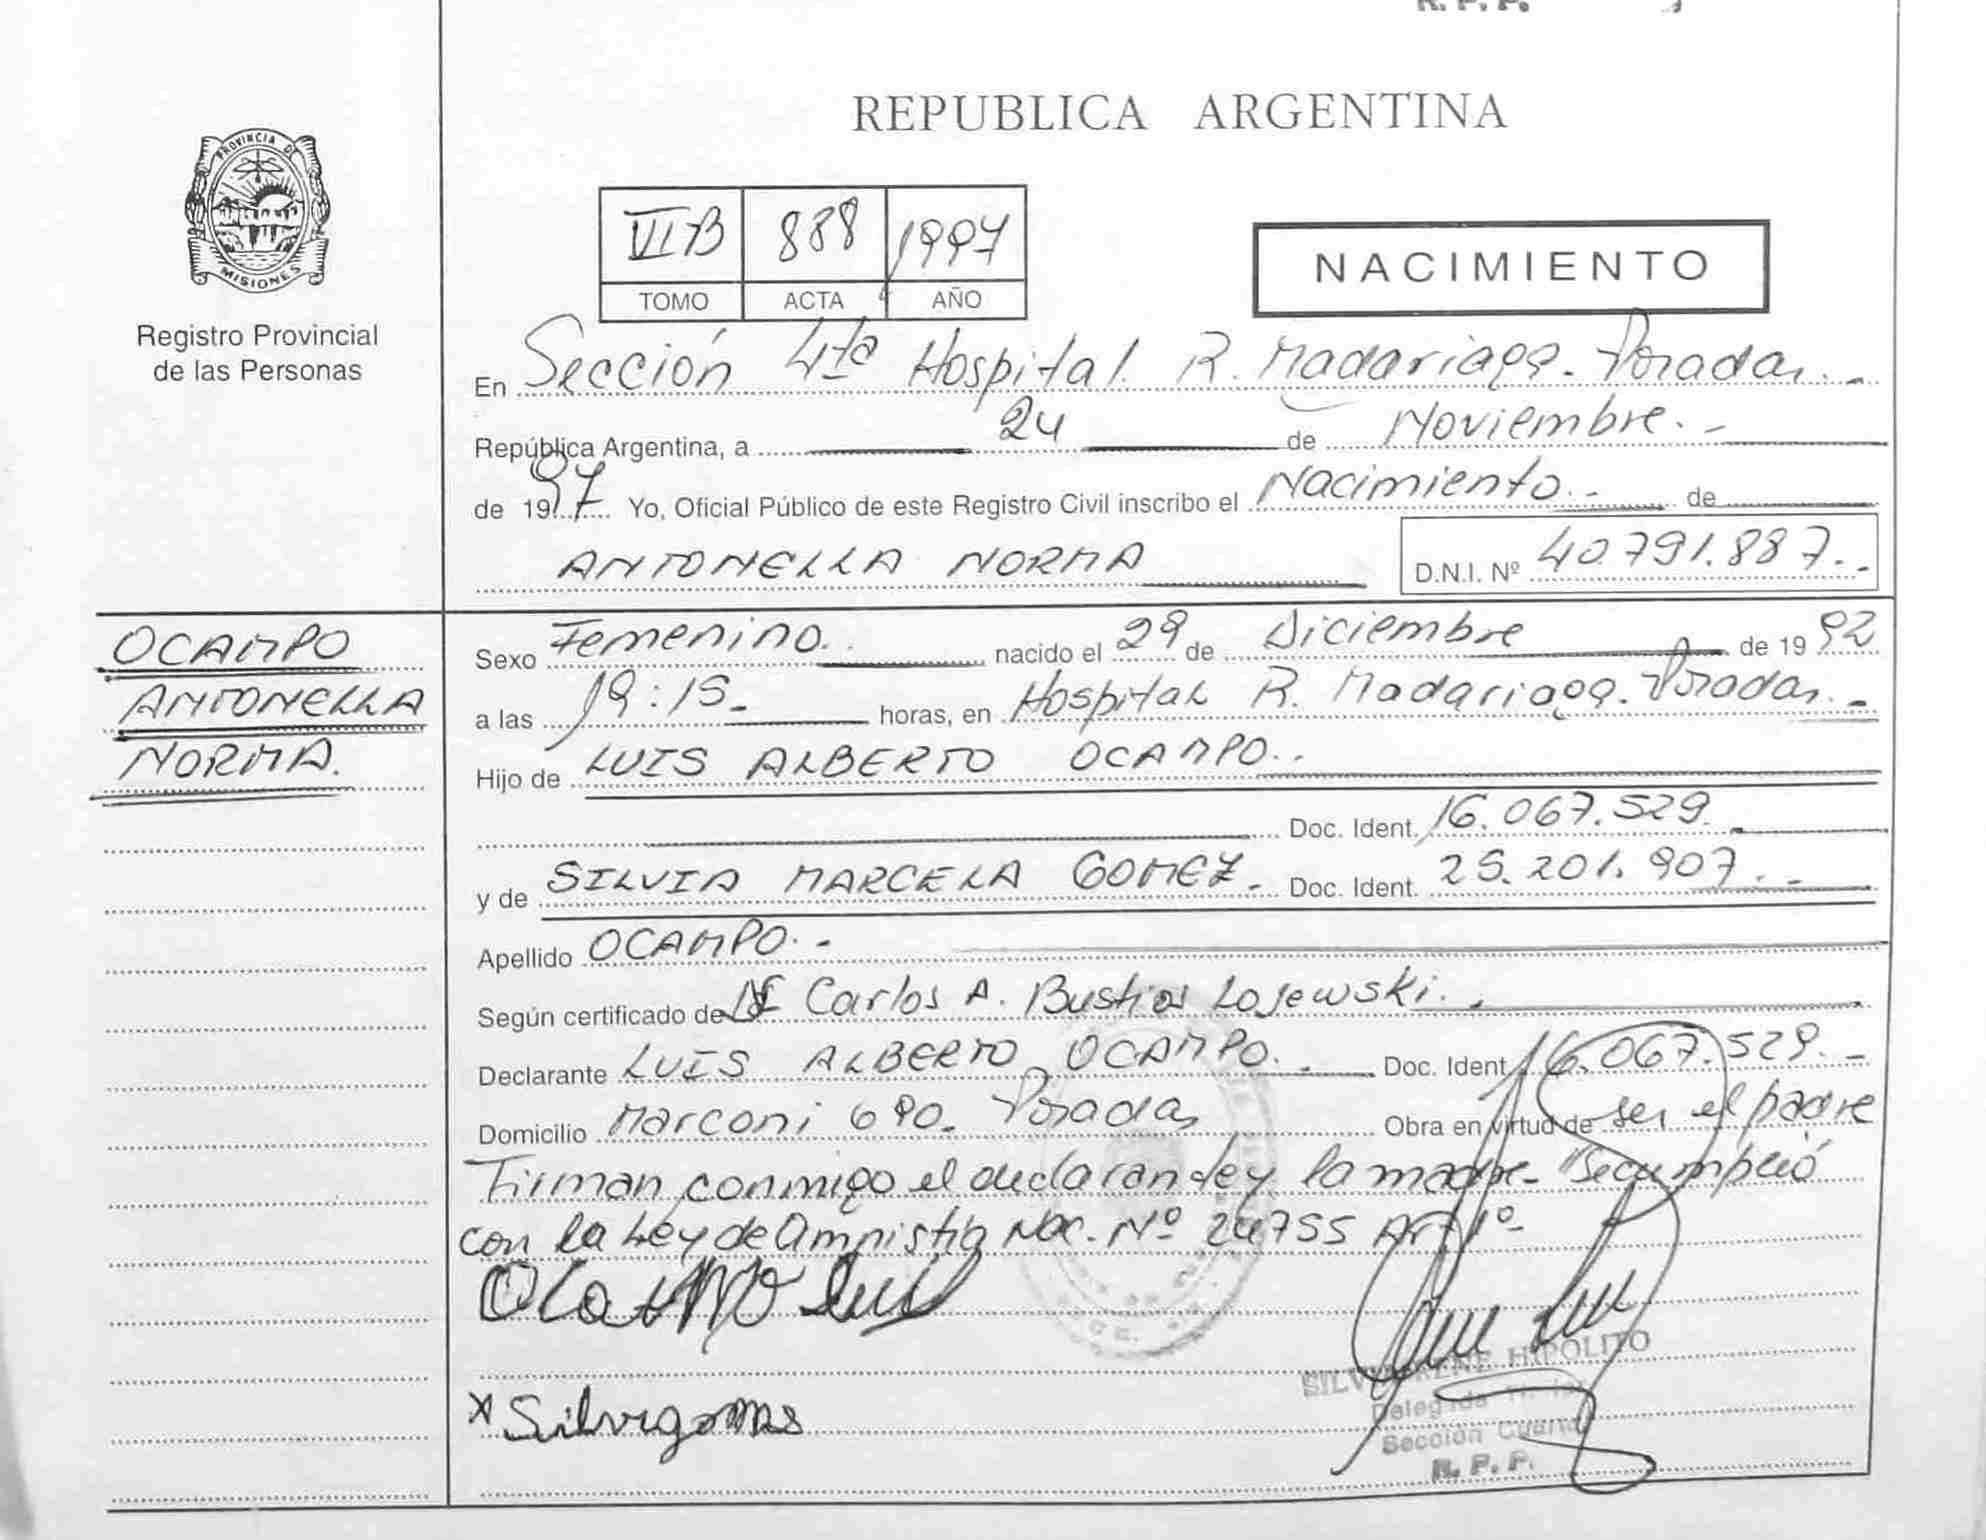 R. P. P.
REPUBLICA ARGENTINA
PROVINCIA DE
MISIONES
Registro Provincial
de las Personas
VI B 888 1997
TOMO ACTA AÑO
NACIMIENTO
En Sección 4ta Hospital R. Madariaga. Posadas.-
República Argentina, a 24 de Noviembre.-
de 1997 Yo, Oficial Público de este Registro Civil inscribo el Nacimiento.- de
ANTONELLA NORMA D.N.I. Nº 40.791.887.-
OCAMPO
ANTONELLA
NORMA.
Sexo Femenino.. nacido el 29 de Diciembre de 19 92
a las 19:15.- horas, en Hospital R. Madariaga. Posadas.-
Hijo de LUIS ALBERTO OCAMPO..
Doc. Ident. 16.067.529.
y de SILVIA MARCELA GOMEZ.- Doc. Ident. 25.201.907.-
Apellido OCAMPO.-
Según certificado de Carlos A. Bustios Lojewski..
Declarante LUIS ALBERTO OCAMPO.- Doc. Ident 16.067.529.-
Domicilio Marconi 690. Posadas Obra en virtud de ser el padre
Firman conmigo el declarante y la madre- "Se cumplió
con la Ley de Amnistía Nac. Nº 24755 Art 1º-
Ocampo Luis
SILVA RENE HIPOLITO
Delegado Titular
Sección Cuarta
R. P. P.
x Silvia gomes